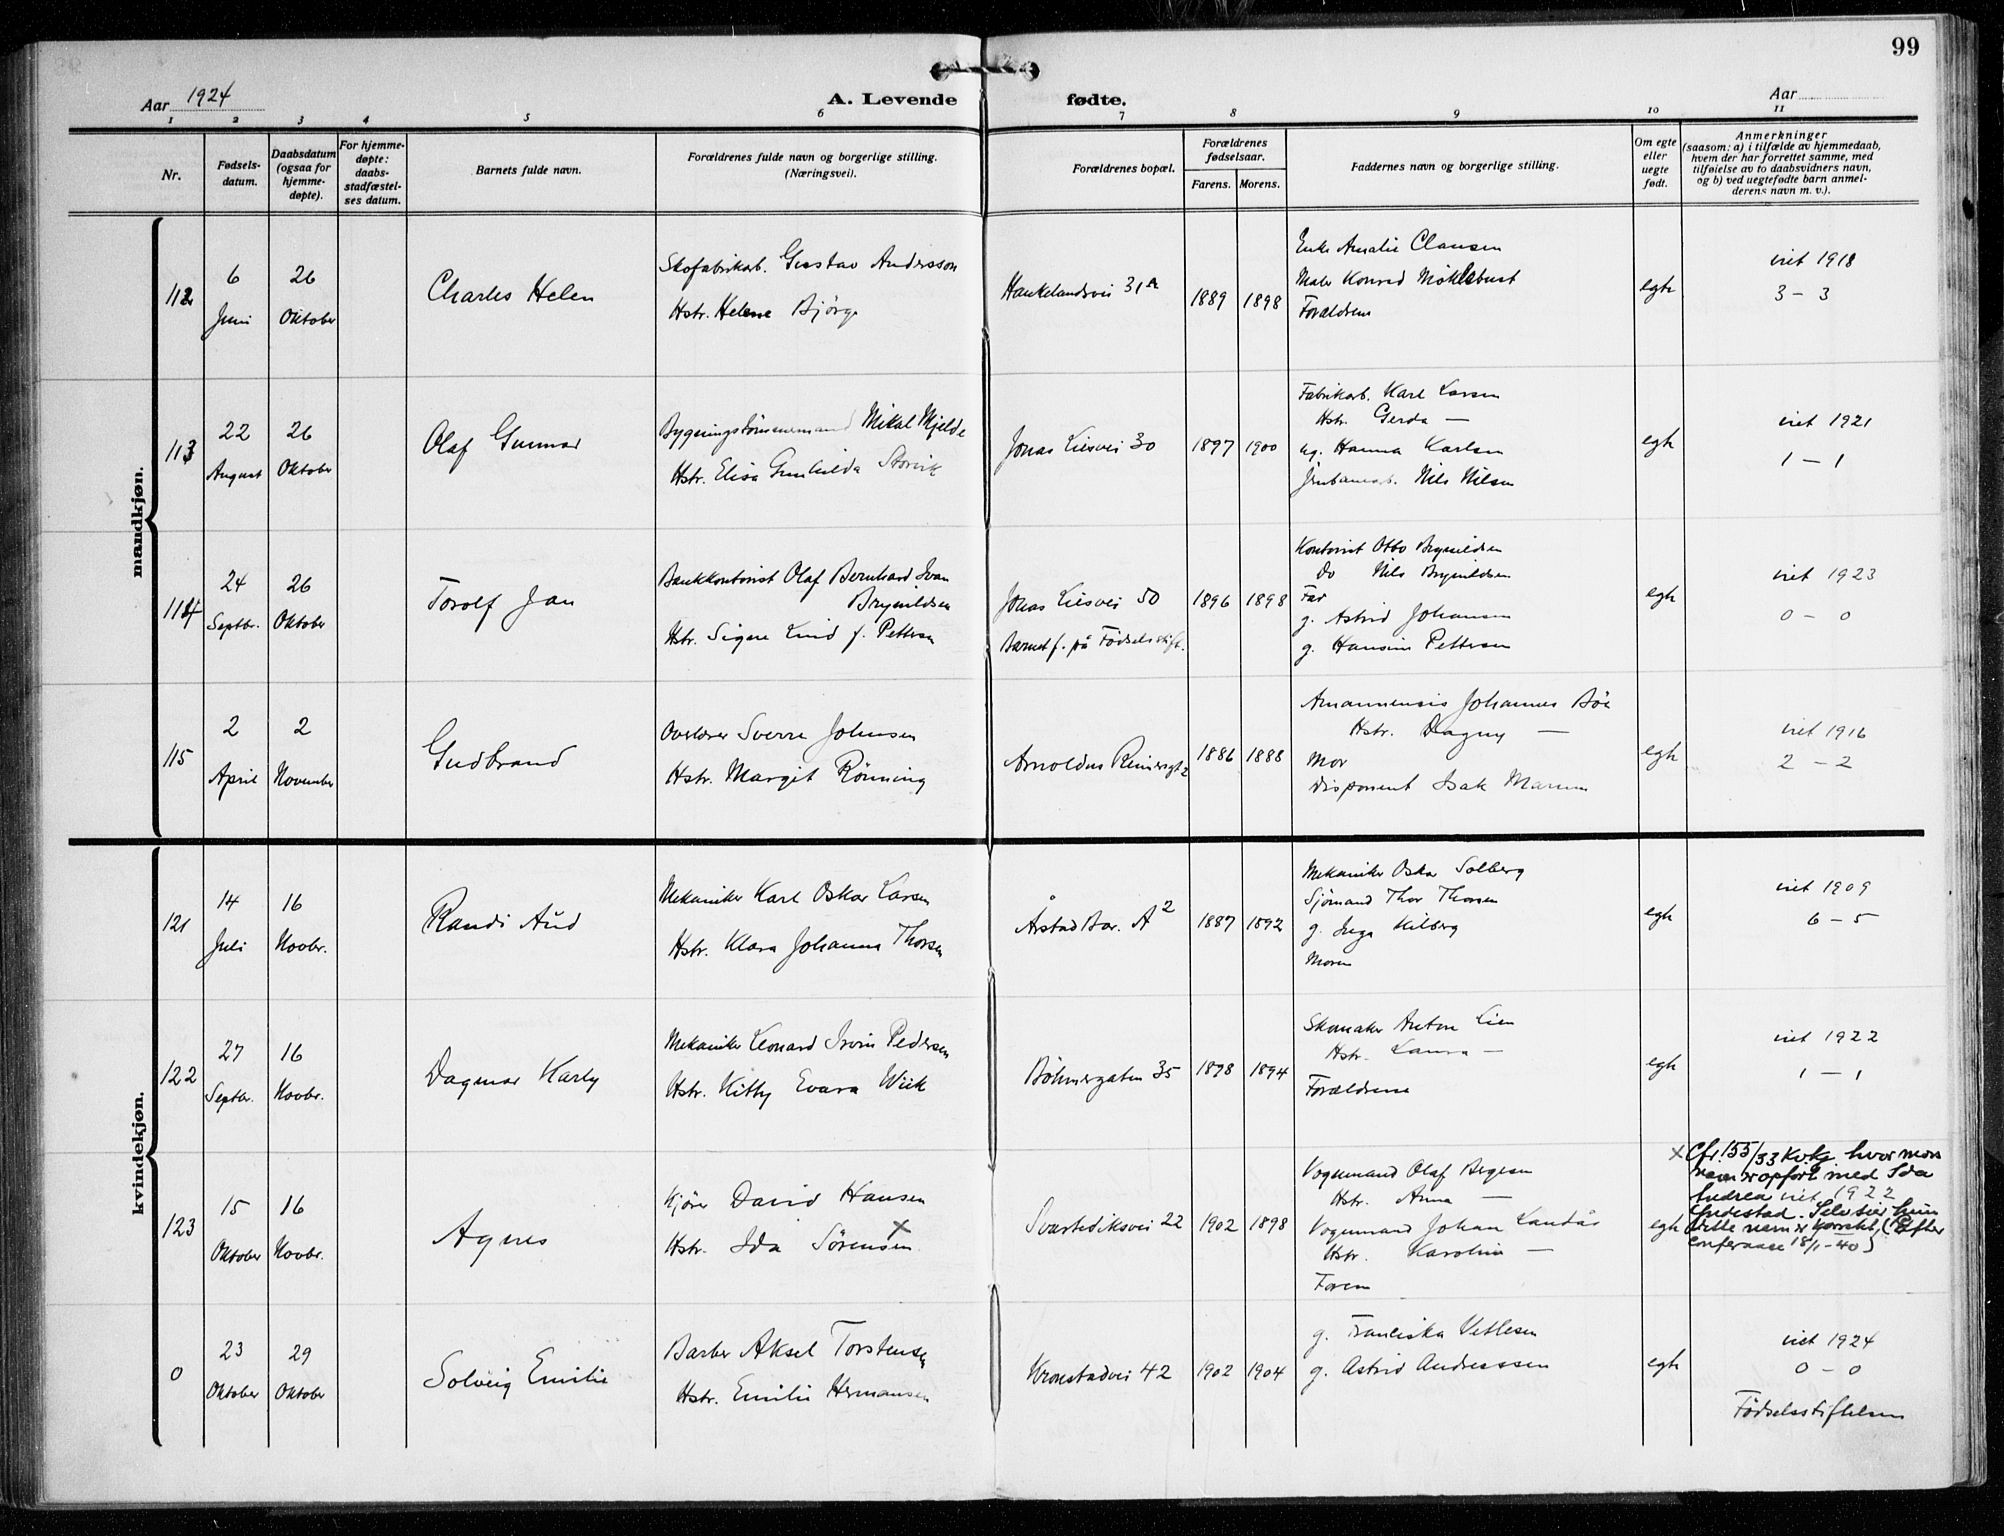 99
Aar 1924
A. Levende fødte.
Aar
1 2 3 4 5 6 7 8 9 10 11
Nr.
Fødsels-
datum.
Daabsdatum
(ogsaa for
hjemme-
døpte).
For hjemme-
døpte:
daabs-
stadfæstel-
ses datum.
Barnets fulde navn.
Forældrenes fulde navn og borgerlige stilling.
(Næringsvei).
Forældrenes bopæl.
Forældrenes
fødselsaar.
Farens. Morens.
Faddernes navn og borgerlige stilling.
Om egte
eller
uegte
født.
Anmerkninger
(saasom: a) i tilfælde av hjemmedaab,
hvem der har forrettet samme, med
tilføielse av to daabsvidners navn,
og b) ved uegtefødte barn anmel-
derens navn m. v.).
mandkjøn.
112
6
Juni
26
Oktober
Charles Helen
Skofabrikarb. Gustav Andersson
Hstr. Helene Bjørge
Haukelandsvei 31 A
1889 1898
Enke Amalie Clausen
Maler Konrad Møklebust
Forældrene
egte
viet 1918
3 – 3
113
22
August
26
Oktober
Olaf Gunnar
Bygningstømmermand Mikal Mjelde
Hstr. Elisa Gunhilda Storvik
Jonas Liesvei 30
1897 1900
Fabrikarb. Karl Larsen
Hstr. Gerda —
ug. Hanna Karlsen
Jernbanearb. Nils Nilsen
egte
viet 1921
1 – 1
114
24
Septbr.
26
Oktober
Torolf Jan
Bankkontorist Olaf Bernhard Ivan
Brynildsen
Hstr. Signe Lind f. Pettersen
Jonas Liesvei 50
Barnet f. på Fødselsstift.
1896 1898
Kontorist Otto Brynildsen
Do Nils Brynildsen
Far
g. Astrid Johansen
g. Hansine Pettersen
egte
viet 1923
0 – 0
115
2
April
2
November
Gudbrand
Overlærer Sverre Johnsen
Hstr. Margit Rønning
Arnoldus Reimersgt 2
1886 1888
Amanuensis Johannes Bøe
Hstr. Dagny —
Mor
Disponent Isak
egte
viet 1916
2 – 2
kvindekjøn.
121
14
Juli
16
Novbr.
Randi Aud
Mekaniker Karl Oskar Larsen
Hstr. Klara Johanna Thorsen
Årstad Bar. A 2
1887 1892
Mekaniker Oskar Solberg
Sjømand Thor Thorsen
g. Inga Kilberg
Moren
egte
viet 1909
6 – 5
122
27
Septbr.
16
Novbr.
Dagmar Karly
Mekaniker Leonard Irvin Pedersen
Hstr. Kitty Evara Wiik
Bøhmergaten 35
1898 1894
Skomaker Anton Lien
Hstr. Laura —
Forældrene
egte
viet 1922
1 – 1
123
15
Oktober
16
Novbr.
Agnes
Kjører David Hansen
Hstr. Ida Sørensen x
Svartediksvei 22
1902 1898
Vognmand Olaf Bergesen
Hstr. Anna —
Vognmand Johan Landås
Hstr. Karoline —
Faren
egte
x Cfr. 155/33 Kvkj. hvor mors
navn er opført med Ida
Andrea viet 1922
Endestad. Selv sier hun
dette navn er korrekt. (Efter
conferanse 18/1-40)
0
23
Oktober
29
Oktober
Solveig Emilie
Barber Aksel Torstensen
Hstr. Emilie Hermansen
Kronstadvei 42
1902 1904
g. Franciska Vetlesen
g. Astrid Andresssen
egte
viet 1924
0 – 0
Fødselsstiftelsen